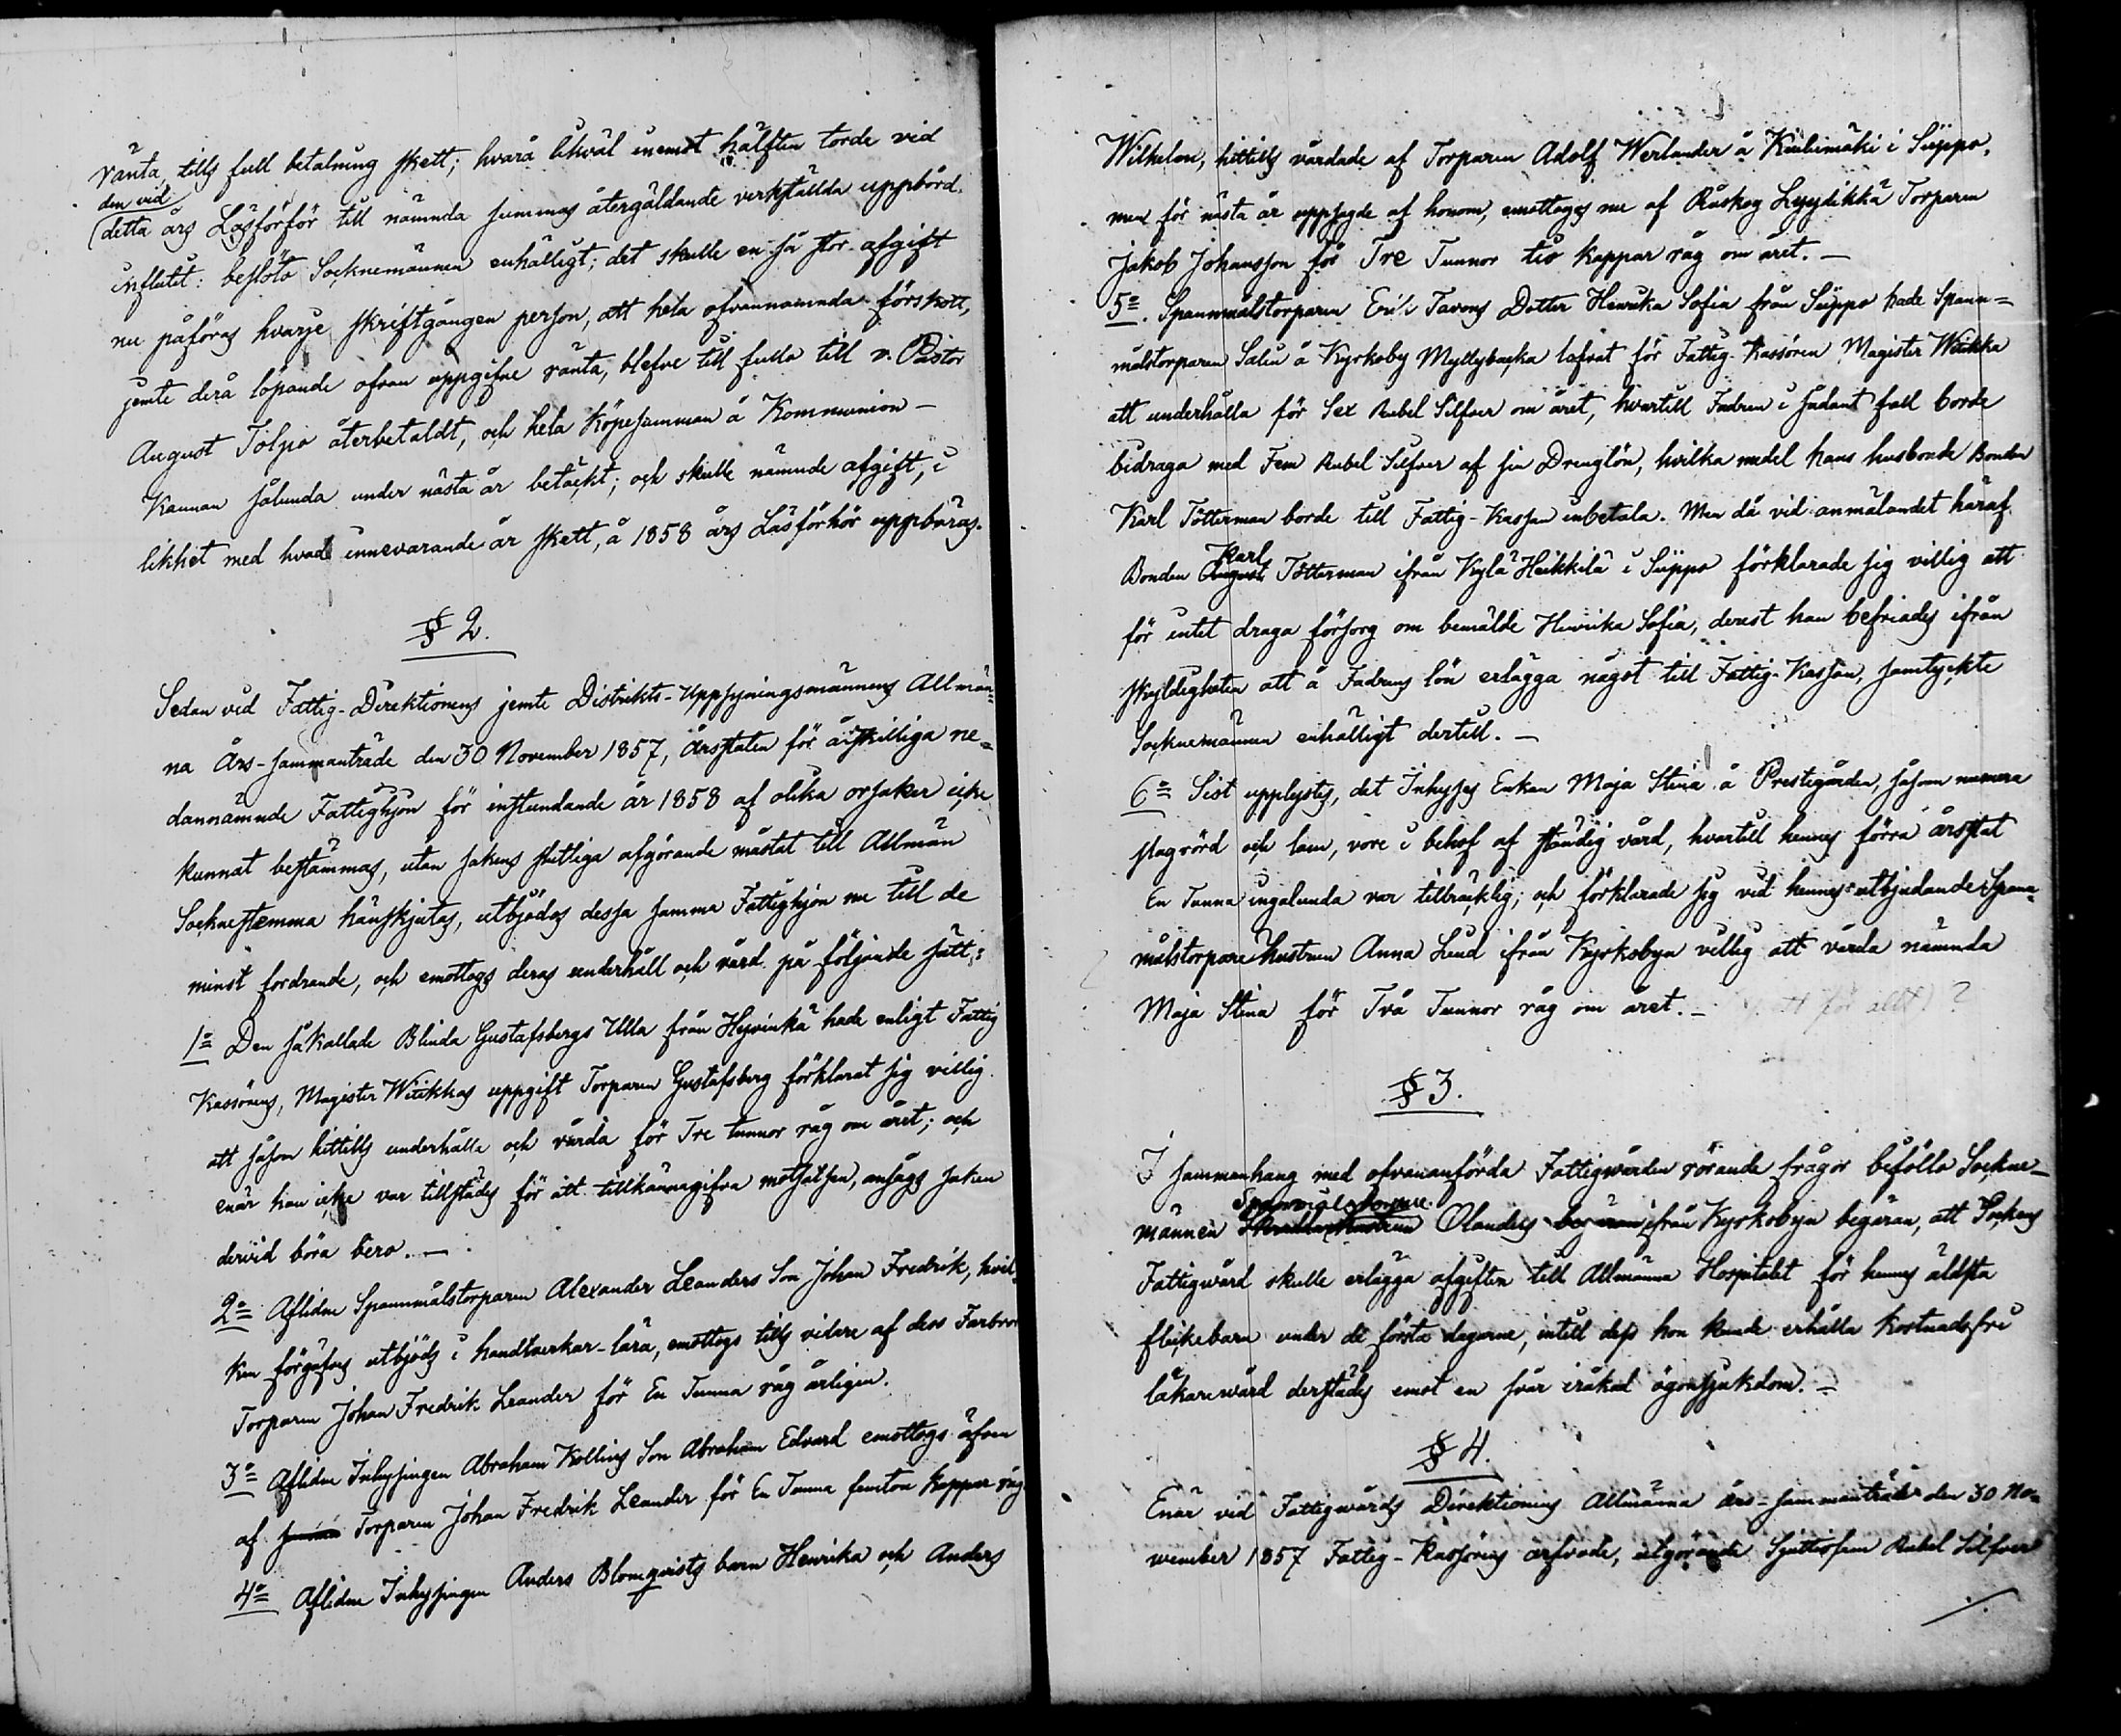 ränta, tills full betalning skett; hvara likväl inemot hälften torde vid
den vid
detta års Läsförhör till nämnda summas återgäldande verkställda uppbörd
influtit: beslöto Socknemännen enhälligt; det skulle en så stor afgift
nu påföras hvarje skriftgången person, att hela ofvannämnda förskott,
jemte derå löpande ofvan uppgifne ränta, blefve till fullo till v. Pastor
August Tolpo återbetaldt, och hela köpesumman å Kommunion-
Kannan sålunda under nästa år betäckt; och skulle nämnde afgift, i
likhet med hvad innevarande år skett, å 1858 års Läsförhör uppbäras.
§ 2.
Sedan vid Fattig-Direktionens jemte Distrikts-Uppsyningsmännens Allmän=
na Års-sammanträde den 30 November 1857, årsstaten för åtskilliga ne=
dannämnde Fattighjon för instundande år 1858 af olika orsaker icke
kunnat bestämmas, utan sakens slutliga afgörande måstat till Allmän
Sockneståmma hänskjutas, utbjödos dessa samma Fattighjon nu till de
minst fordrande, och emottogs deras underhåll och vård på följande sätt:
1o Den såkallade Blinda Gustafsbergs Ulla från Hyvinkä hade enligt Fattig
Kassörens, Magister Witikkas uppgift Torparen Gustafsberg förklarat sig villig
att såsom hittills underhålla och vårda för Tre tunnor råg om året; och
enär han icke var tillstädes för att tillkännagifva motsatsen, ansågs saken
dervid böra bero. —
2o Aflidne Spannmålstorparen Alexander Leanders Son Johan Fredrik, hvil=
ken förgäfves utbjöds i handtverkar-lära, emottogs tills vidare af dess Farbror
Torparen Johan Fredrik Leander för En Tunna råg årligen.
3o Aflidne Inhysingen Abraham Kollins Son Abraham Edvard emottogs äfven
af Torparen Johan Fredrik Leander för En Tunna femton kappar råg
4o Aflidne Inhysingen Anders Blomqvists barn Henrika och Anders
Wilhelm, hittills vårdade af Torparen Adolf Werlander å Kiulimäki i Suppo,
men för nästa år uppsagde af honom, emottoges nu af Ruskog Lyydikkä Torparen
Jakob Johansson för Tre Tunnor tio kappar råg om året. —
5o. Spannmålstorparen Erik Tavens Dotter Henrika Sofia från Suppo hade Spann=
målstorparen Salin å Kyrkoby Myllybacka lofvat för Fattig-Kassören Magister Witikka
att underhålla för Sex Rubel Silfver om året, hvartill Fadren i sådant fall borde
bidraga med Fem Rubel Silfver af sin Drenglön, hvilka medel hans husbonde Bonden
Karl Tötterman borde till Fattig-Kassan inbetala. Men då vid anmälandet häraf
Karl
Bonden August Tötterman ifrån Kylä Heikkilä i Suppo förklarade sig villig att
för intet draga försorg om bemälde Henrika Sofia, derest han befriades ifrån
skyldigheten att å Fadrens lön erlägga något till Fattig-Kassan, samtyckte
Socknemännen enhälligt dertill. —
6o Sist upplystes, det Inhyses Enkan Maja Stina å Prestegården, såsom numera
slagrörd och lam, vore i behof af ständig vård, hvartill hennes förra årsstat
En Tunna ingalunda var tillräcklig; och förklarade sig vid hennes utbjudande Spann=
målstorpare hustrun Anna Lind ifrån Kyrkobyn villig att vårda nämnda
Maja Stina för Två Tunnor råg om året. —
§ 3.
I sammanhang med ofvananförda Fattigvården rörande frågor biföllo Sockne-
Spannmålstorpare
männen Olanders ifrån Kyrkobyn begäran, att Sockens
Fattigvård skulle erlägga afgiften till Allmänna Hospitalet för hennes äldsta
flickebarn under de första dagarne, intill dess hon kunde erhålla kostnadsfri
läkarevård derstädes emot en svår iråkad ögonsjukdom. —
§ 4.
Enär vid Fattigvårds Direktionens Allmänna års-sammanträde den 30 No=
vember 1857 Fattig-Kassörens arfvode, utgörande Sjuttiofem Rubel Silfver